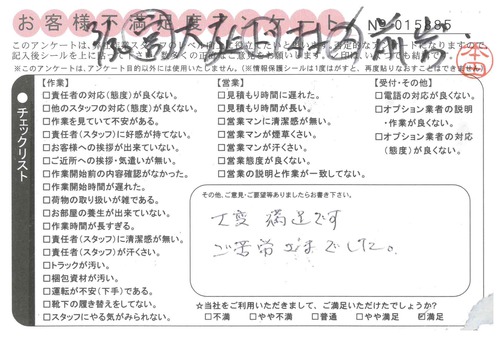 お客様不満足度アンケート
No 015885
※このアンケートは、アンケート目的以外には使用いたしません。(※情報保護シールは1度はがすと、再度貼りなおすことはできません。)
チェックリスト
【作業】
□責任者の対応(態度)が良くない。
□他のスタッフの対応(態度)が良くない。
□作業を見ていて不安がある。
□責任者(スタッフ)に好感が持てない。
□お客様への挨拶が出来ていない。
□ご近所への挨拶・気遣いが無い。
□作業開始前の内容確認がなかった。
□作業開始時間が遅れた。
□荷物の取り扱いが雑である。
□お部屋の養生が出来ていない。
□作業時間が長すぎる。
□責任者(スタッフ)に清潔感が無い。
□責任者(スタッフ)が汗くさい。
□トラックが汚い。
□梱包資材が汚い。
□運転が不安(下手)である。
□靴下の履き替えをしてない。
□スタッフにやる気がみられない。
【営業】
□見積もり時間に遅れた。
□見積もり時間が長い。
□営業マンに清潔感が無い。
□営業マンが煙草くさい。
□営業マンが汗くさい。
□営業態度が良くない。
□営業の説明と作業が一致してない。
【受付・その他】
□電話の対応が良くない。
□オプション業者の説明
・作業が良くない。
□オプション業者の対応
(態度)が良くない。
その他、ご意見・ご要望等ありましたらお書き下さい。
大変満足です
ご苦労さまでした。
☆当社をご利用いただきまして、ご満足いただけたでしょうか?
□不満 □やや不満 □普通 □やや満足 ☑満足